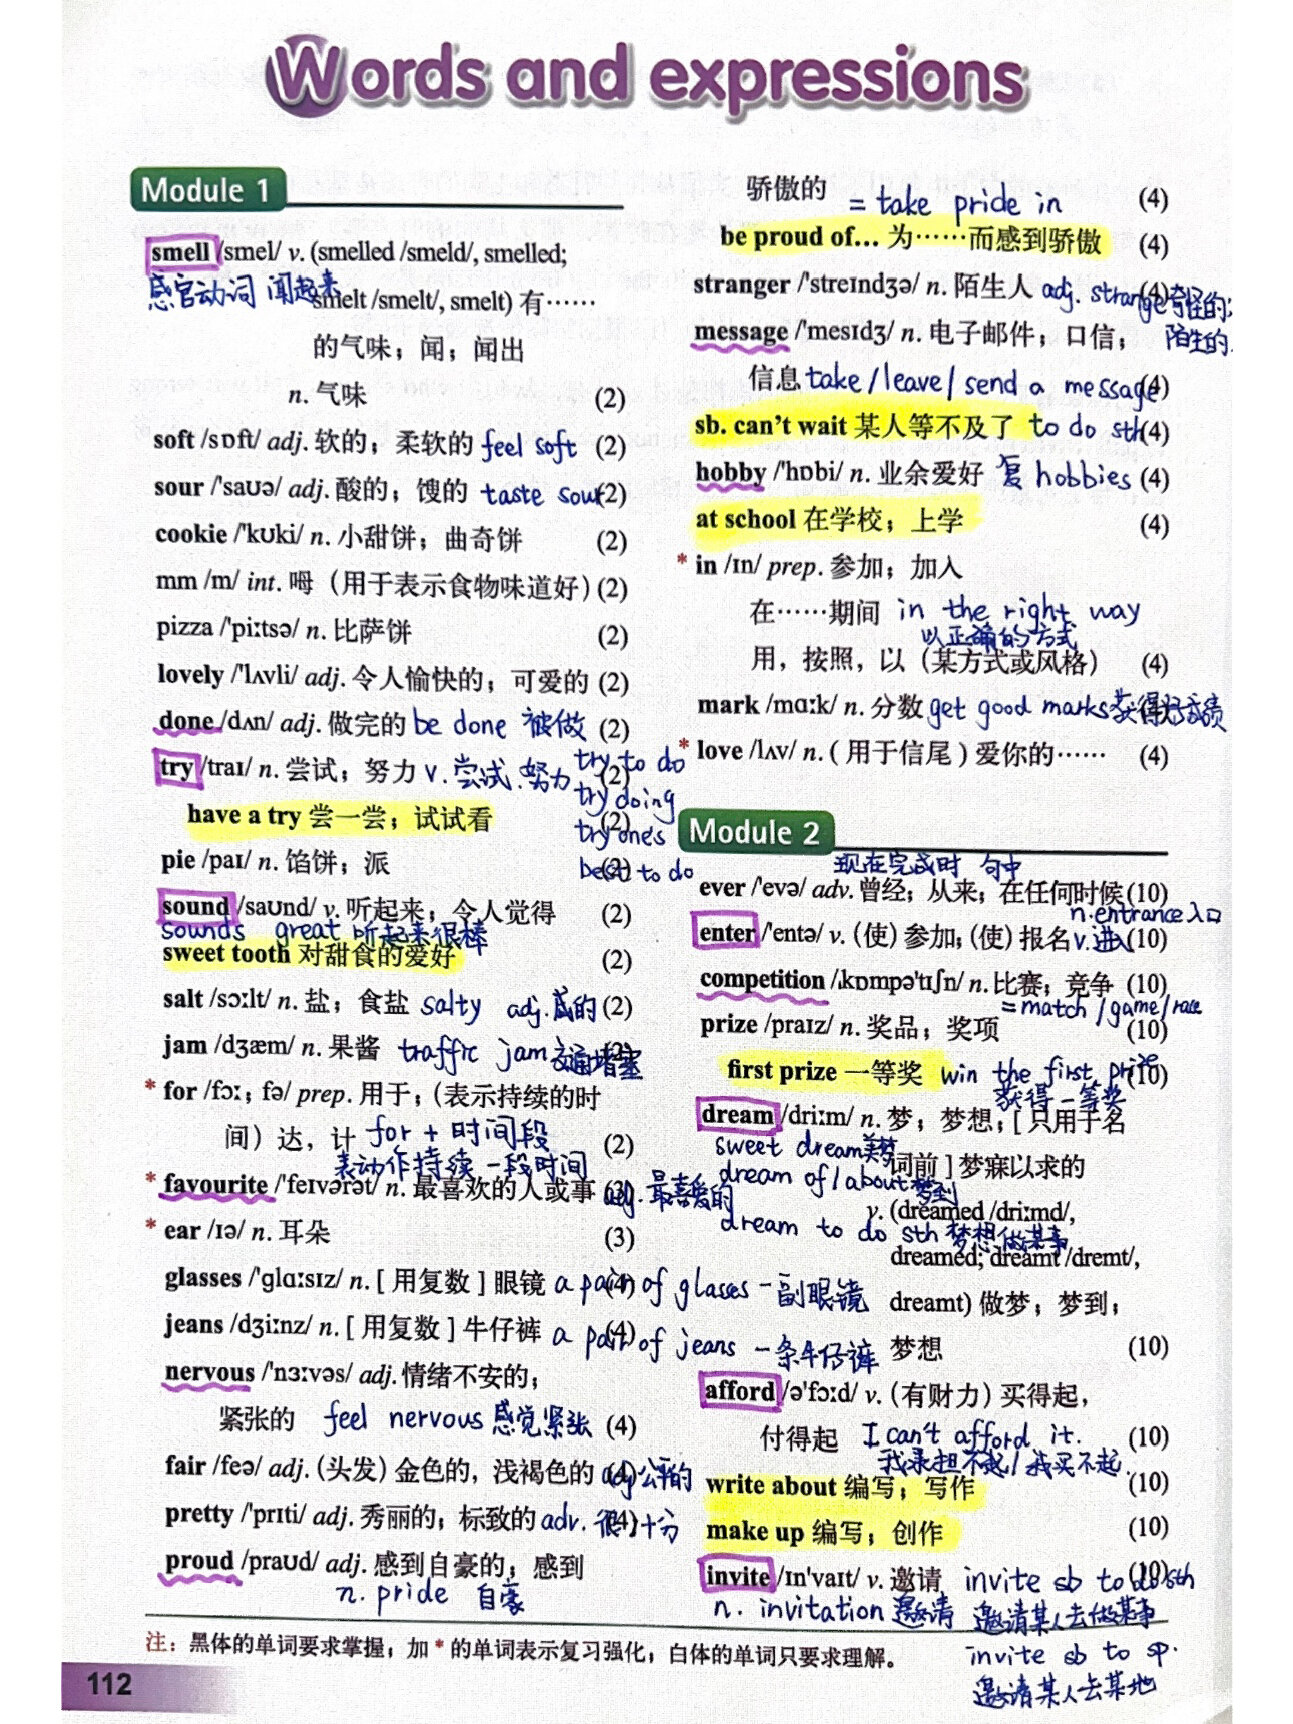 Words and expressions
Module 1
smell /smel/ v. (smelled /smeld/, smelled;
感官动词 闻起来 smelt /smelt/, smelt) 有……
的气味；闻；闻出
n. 气味 (2)
soft /sɒft/ adj. 软的；柔软的 feel soft (2)
sour /'saʊə/ adj. 酸的；馊的 taste sour (2)
cookie /'kʊki/ n. 小甜饼；曲奇饼 (2)
mm /m/ int. 呣（用于表示食物味道好）(2)
pizza /'piːtsə/ n. 比萨饼 (2)
lovely /'lʌvli/ adj. 令人愉快的；可爱的 (2)
done /dʌn/ adj. 做完的 be done 被做 (2)
try /traɪ/ n. 尝试；努力 v. 尝试.努力 (2) try to do
try doing
have a try 尝一尝；试试看 (2)
try one's
pie /paɪ/ n. 馅饼；派 (2) best to do
sound /saʊnd/ v. 听起来；令人觉得 (2)
sounds great 听起来很棒
sweet tooth 对甜食的爱好 (2)
salt /sɔːlt/ n. 盐；食盐 salty adj. 咸的 (2)
jam /dʒæm/ n. 果酱 traffic jam 交通堵塞 (2)
* for /fɔː; fə/ prep. 用于；(表示持续的时
间）达，计 for + 时间段 (2)
表动作持续一段时间
* favourite /'feɪvərət/ n. 最喜欢的人或事 (3) adj. 最喜爱的
* ear /ɪə/ n. 耳朵 (3)
glasses /'ɡlɑːsɪz/ n. [ 用复数 ] 眼镜 a pair of glasses 一副眼镜 (4)
jeans /dʒiːnz/ n. [ 用复数 ] 牛仔裤 a pair of jeans 一条牛仔裤 (4)
nervous /'nɜːvəs/ adj. 情绪不安的；
紧张的 feel nervous 感觉紧张 (4)
fair /feə/ adj. (头发) 金色的，浅褐色的 (4) adj 公平的
pretty /'prɪti/ adj. 秀丽的；标致的 adv. 很,十分 (4)
proud /praʊd/ adj. 感到自豪的；感到
n. pride 自豪
骄傲的 (4)
= take pride in
be proud of... 为……而感到骄傲 (4)
stranger /'streɪndʒə/ n. 陌生人 (4) adj. strange 奇怪的;
陌生的
message /'mesɪdʒ/ n. 电子邮件；口信；
信息 take / leave / send a message (4)
sb. can't wait 某人等不及了 to do sth (4)
hobby /'hɒbi/ n. 业余爱好 复 hobbies (4)
at school 在学校；上学 (4)
* in /ɪn/ prep. 参加；加入
在……期间 in the right way
以正确的方式
用，按照，以（某方式或风格） (4)
mark /mɑːk/ n. 分数 get good marks 获得好成绩 (4)
* love /lʌv/ n. ( 用于信尾 ) 爱你的…… (4)
Module 2
现在完成时 句中
ever /'evə/ adv. 曾经；从来；在任何时候 (10)
n. entrance 入口
enter /'entə/ v. (使) 参加；(使) 报名 v. 进入 (10)
competition /ˌkɒmpə'tɪʃn/ n. 比赛；竞争 (10)
= match / game / race
prize /praɪz/ n. 奖品；奖项 (10)
first prize 一等奖 win the first prize (10)
获得一等奖
dream /driːm/ n. 梦；梦想；[ 只用于名
sweet dream 美梦
词前 ] 梦寐以求的
dream of / about 梦到
v. (dreamed /driːmd/,
dream to do sth 梦想做某事
dreamed; dreamt /dremt/,
dreamt) 做梦；梦到；
梦想 (10)
afford /ə'fɔːd/ v. (有财力) 买得起，
付得起 I can't afford it. (10)
我承担不起/我买不起.
write about 编写；写作 (10)
make up 编写；创作 (10)
invite /ɪn'vaɪt/ v. 邀请 invite sb to do sth (10)
n. invitation 邀请 邀请某人去做某事
invite sb to sp.
邀请某人去某地
注：黑体的单词要求掌握；加 * 的单词表示复习强化；白体的单词只要求理解。
112